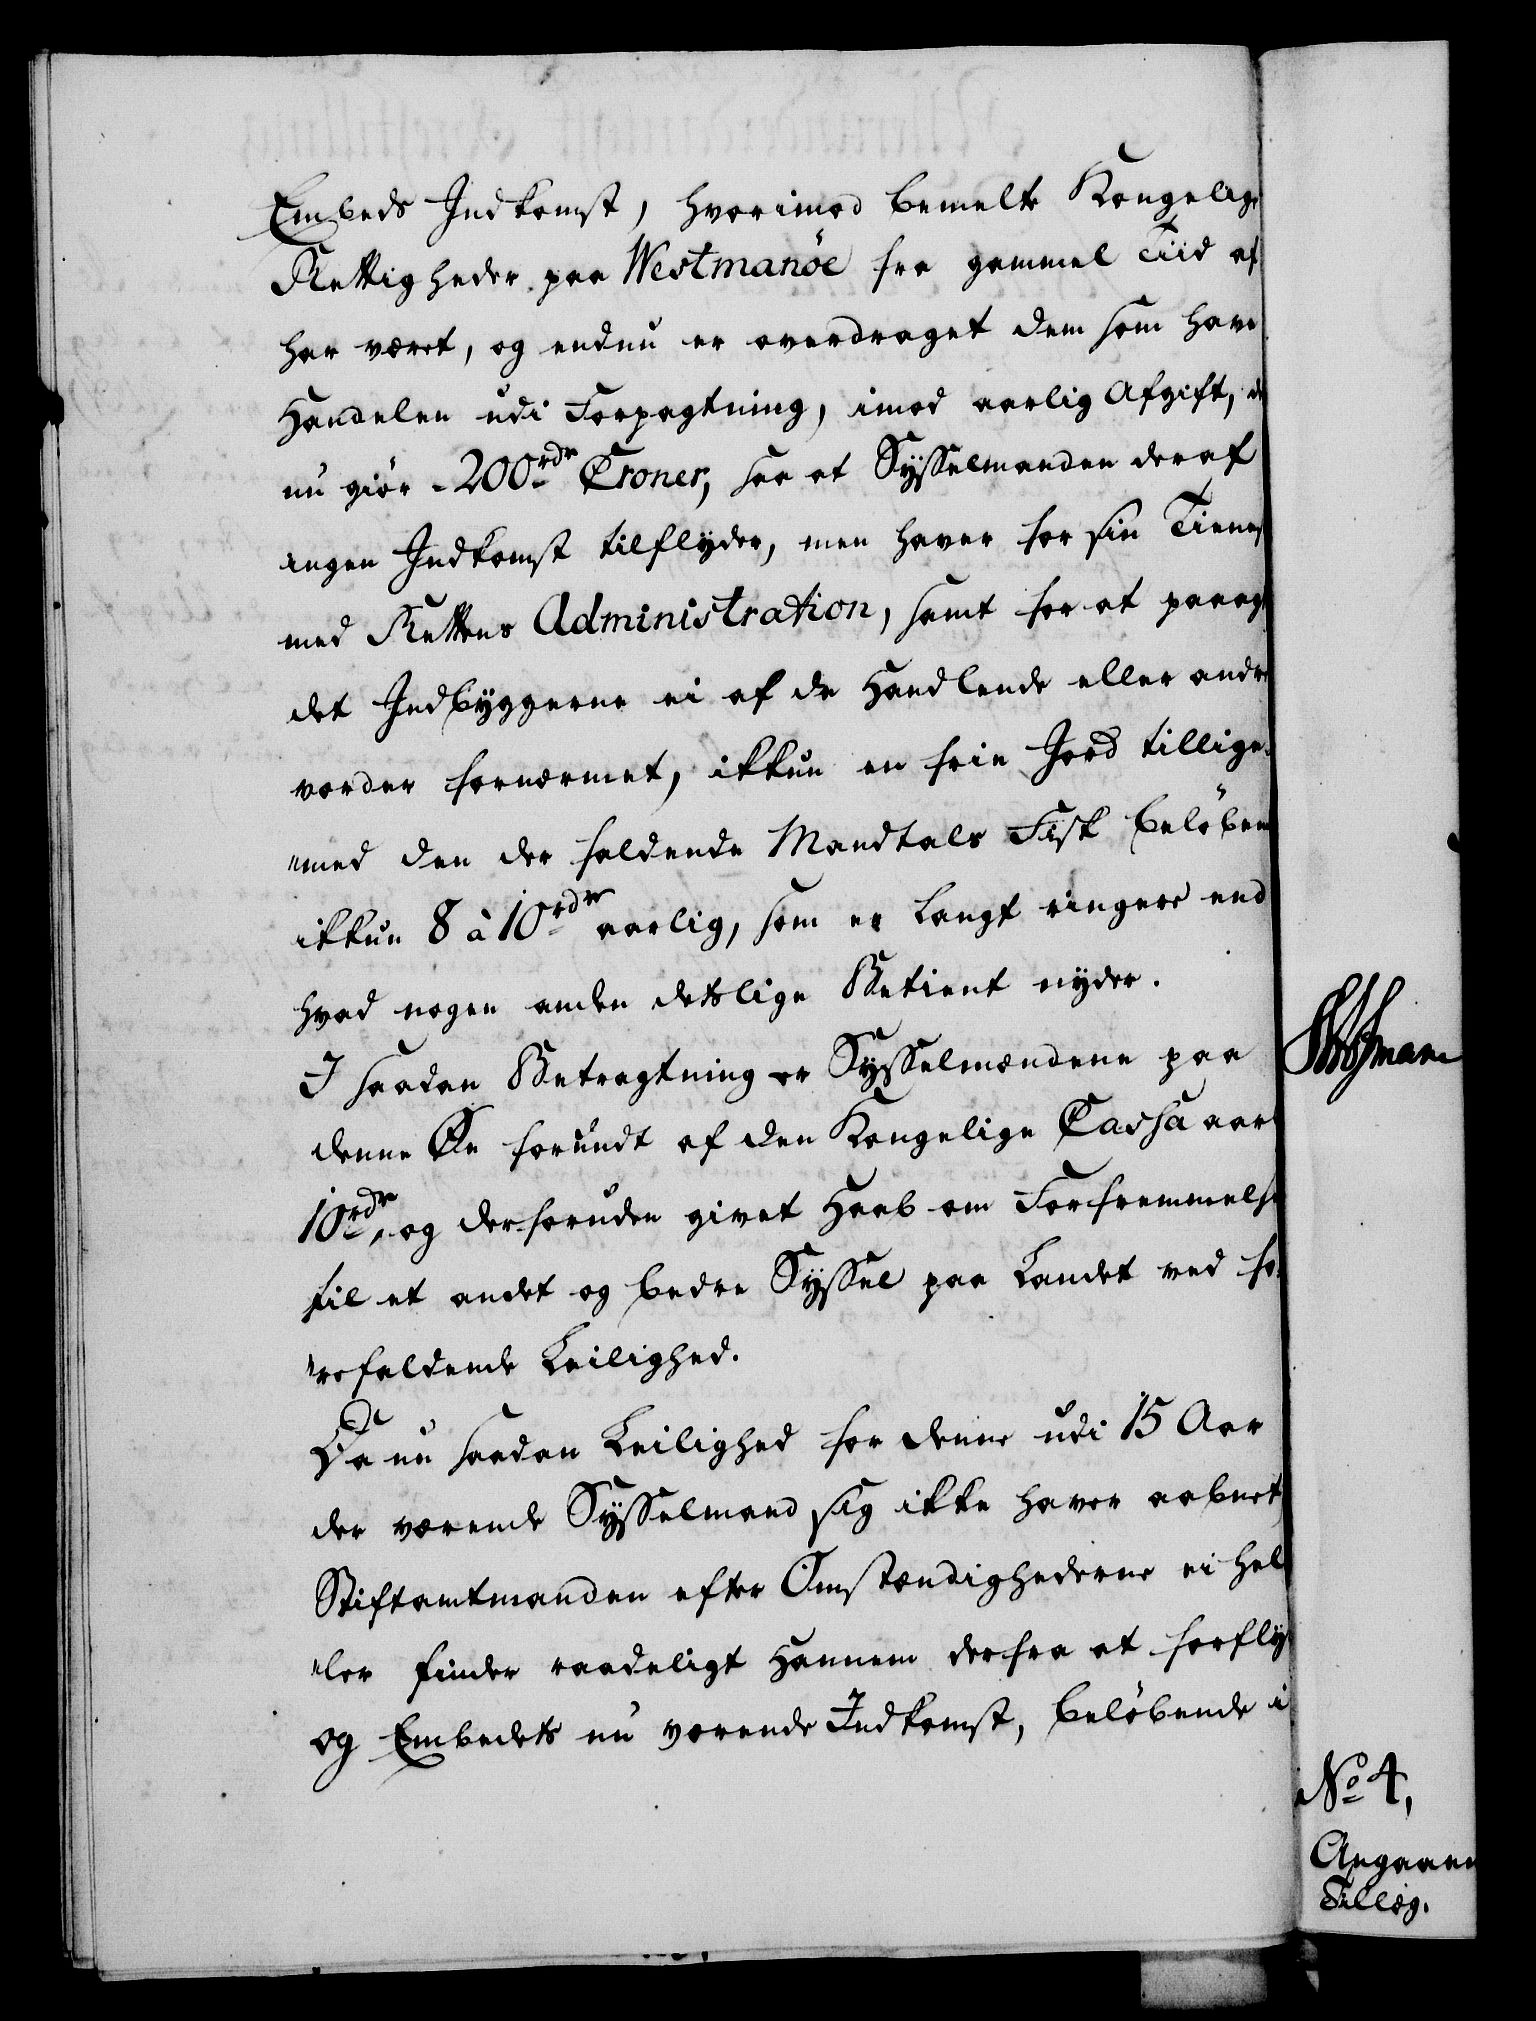 Embeds Indkomst, hvorimod bemelte Kongelige
Rettigheder paa Westmanöe fra gammel Tiid af
har været, og endnu er overdraget dem som have
Handelen udi Forpagtning, imod aarlig Afgift, de
nu giör 200 rdr Croner, saa at Sÿsselmanden deraf
ingen Indkomst tilflÿder, men haver for sin Tienes
med Rettens Administration, samt for at paaag
det Indbÿggerne ei af de Handlende eller andre
vorder fornærmet, ikkun en frie Jord tillige-
"med den der faldende Mandtals Fisk belöben
ikkun 8 à 10 rdr aarlig, som er langt ringere end
hvad nogen anden deslige Betient nÿder.
I saadan Betragtning er Sÿsselmændene paa
denne Øe forundt af den Kongelige Cassa aarl
10 rdr, og desforuden givet Haab om Forfremmelse
til et andet og bedre Sÿssel paa Landet ved fo-
"refaldende Leilighed.
Da nu saadan Leilighed for denne udi 15 Aar
der værende Sÿsselmand sig ikke haver aabnet,
Stiftamtmanden efter Omstændighederne ei hel
"ler finder raadeligt Hannem derfra at forflÿ
og Embedets nu værende Indkomst, belöbende i
No 4,
Angaaen
Tillæg.